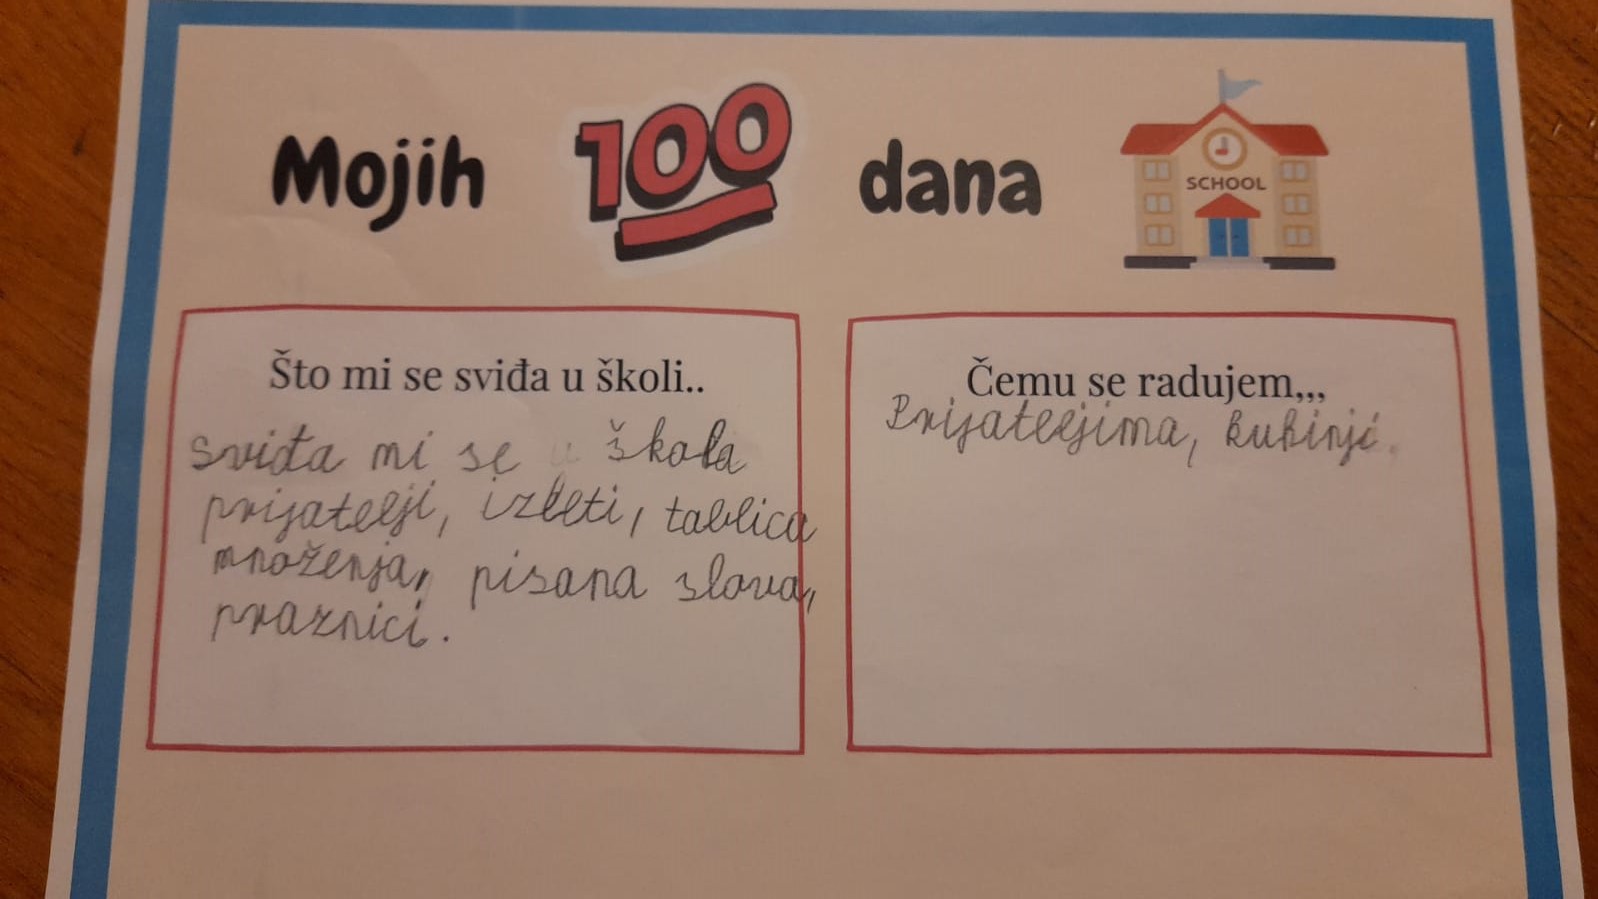 Mojih 100 dana
SCHOOL
Što mi se sviđa u školi..
Sviđa mi se škola
prijatelji, izleti, tablica
množenja, pisana slova,
praznici.
Čemu se radujem,,,
Prijateljima,